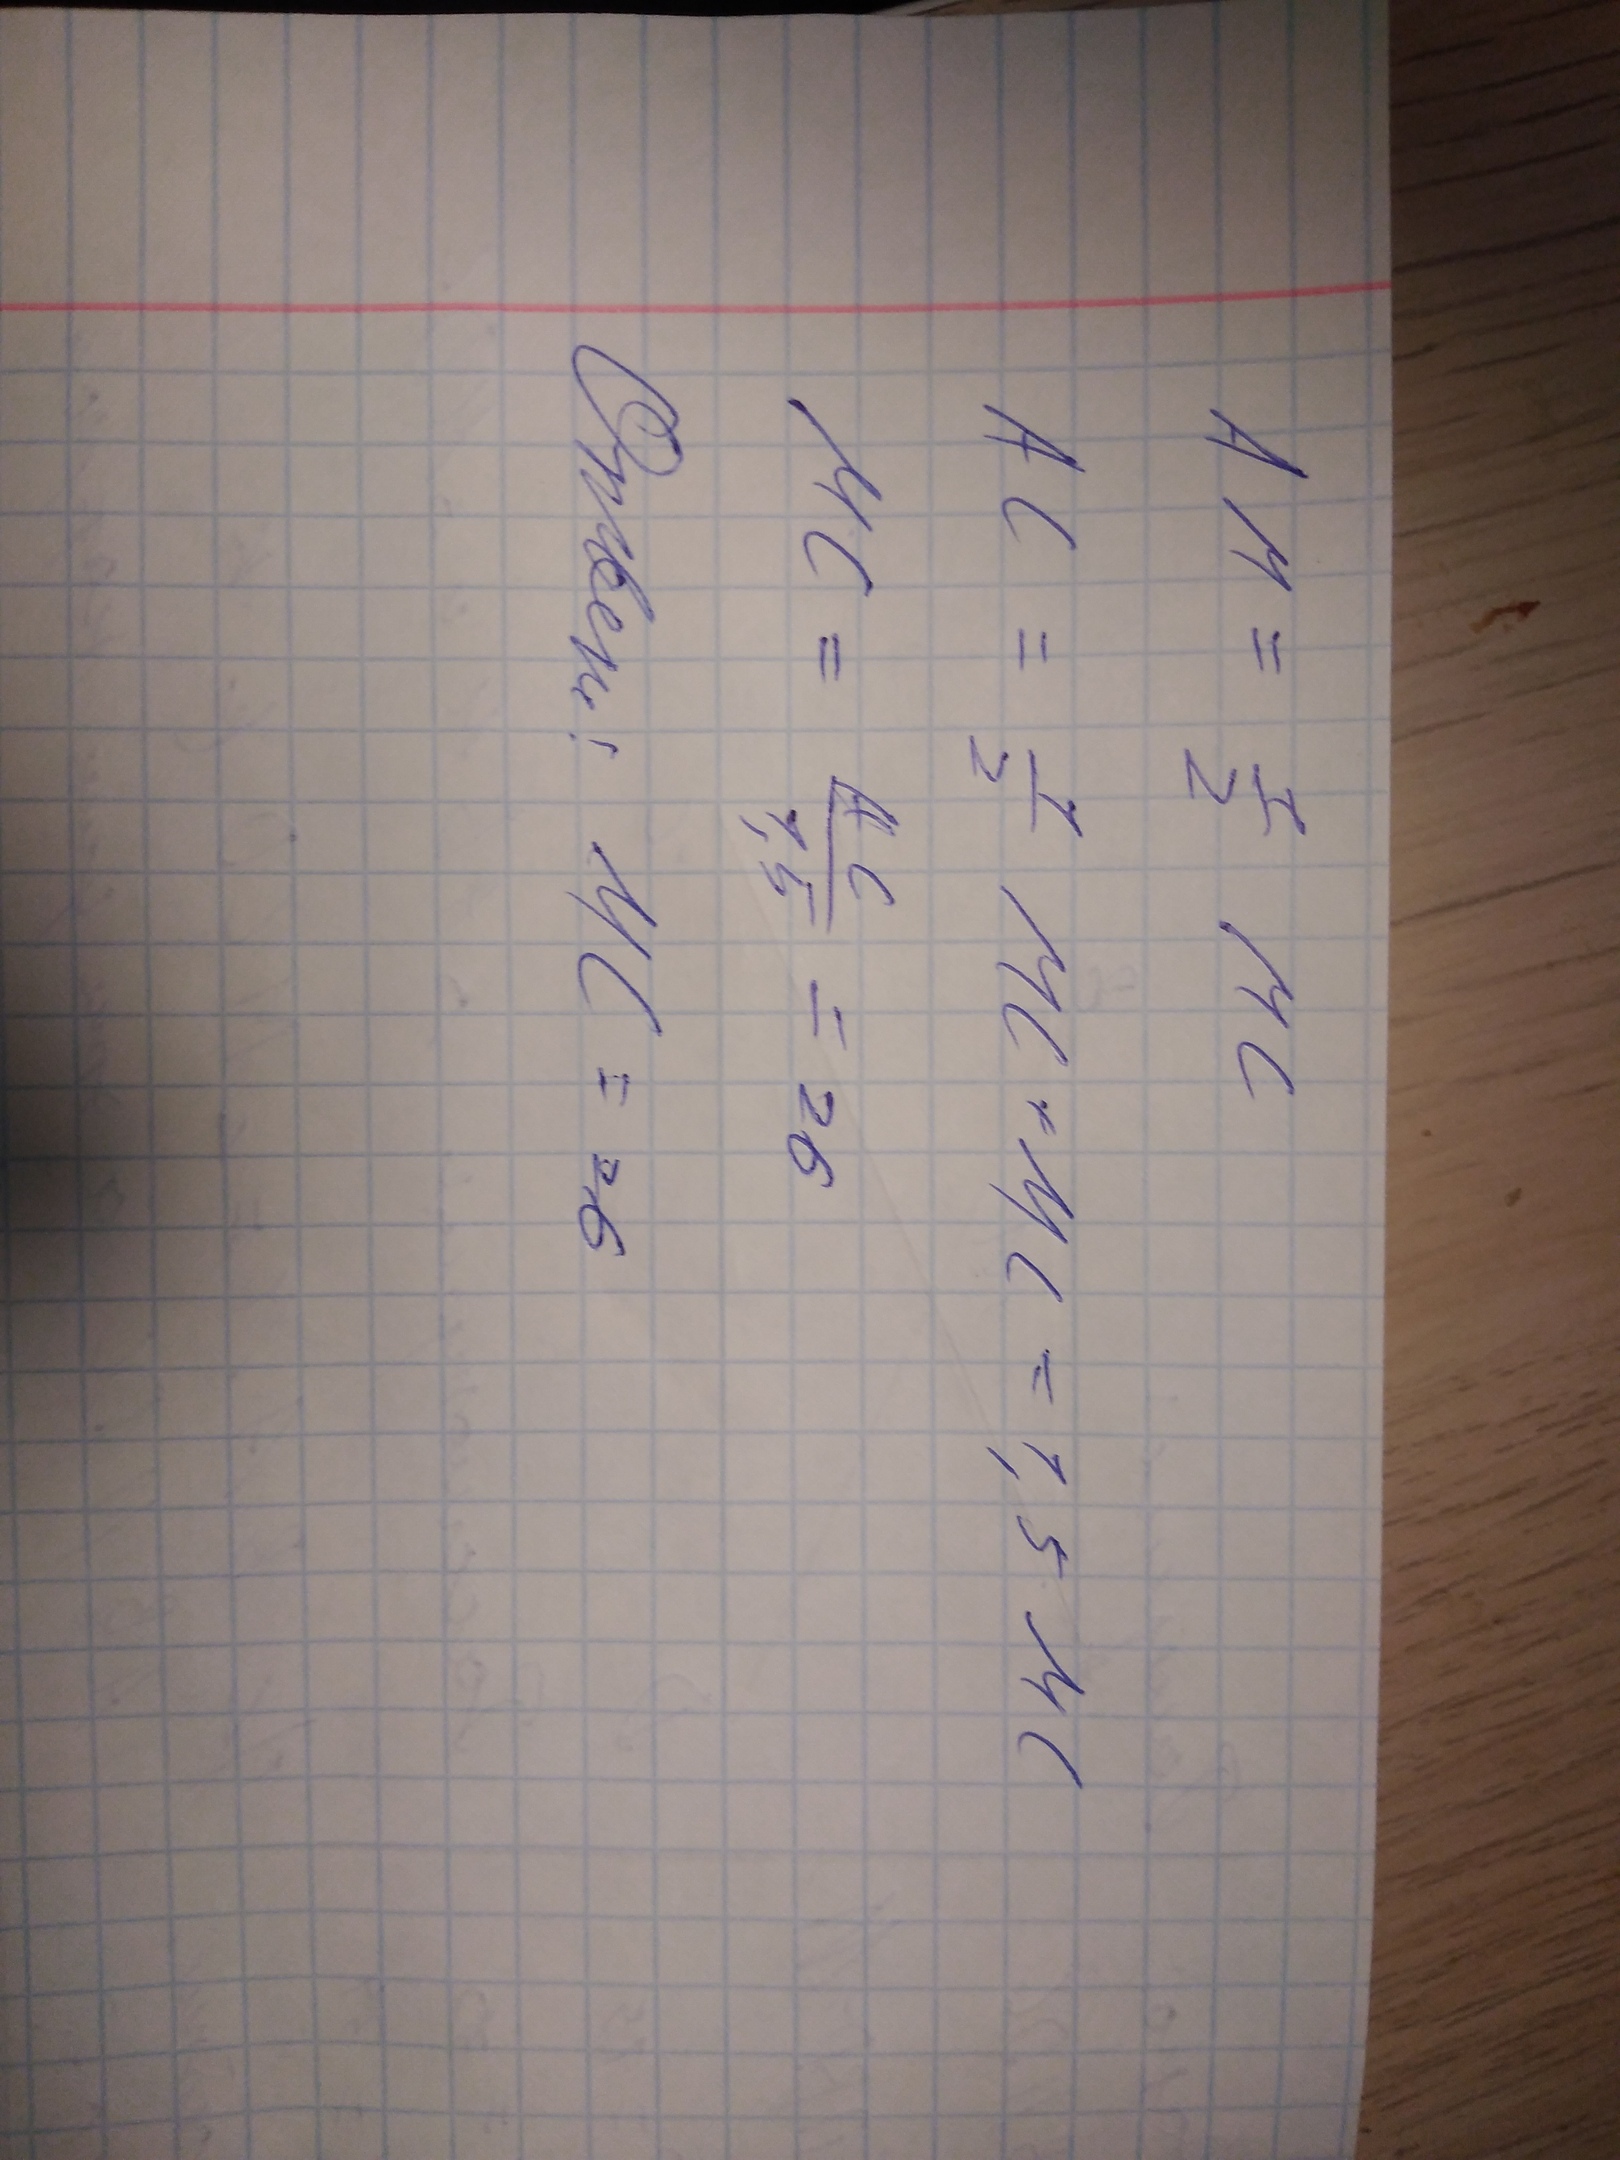 AM = 1/2 MC
AC = 1/2 MC + MC = 1,5 MC
MC = AC/1,5 = 26
Ответ: MC = 26